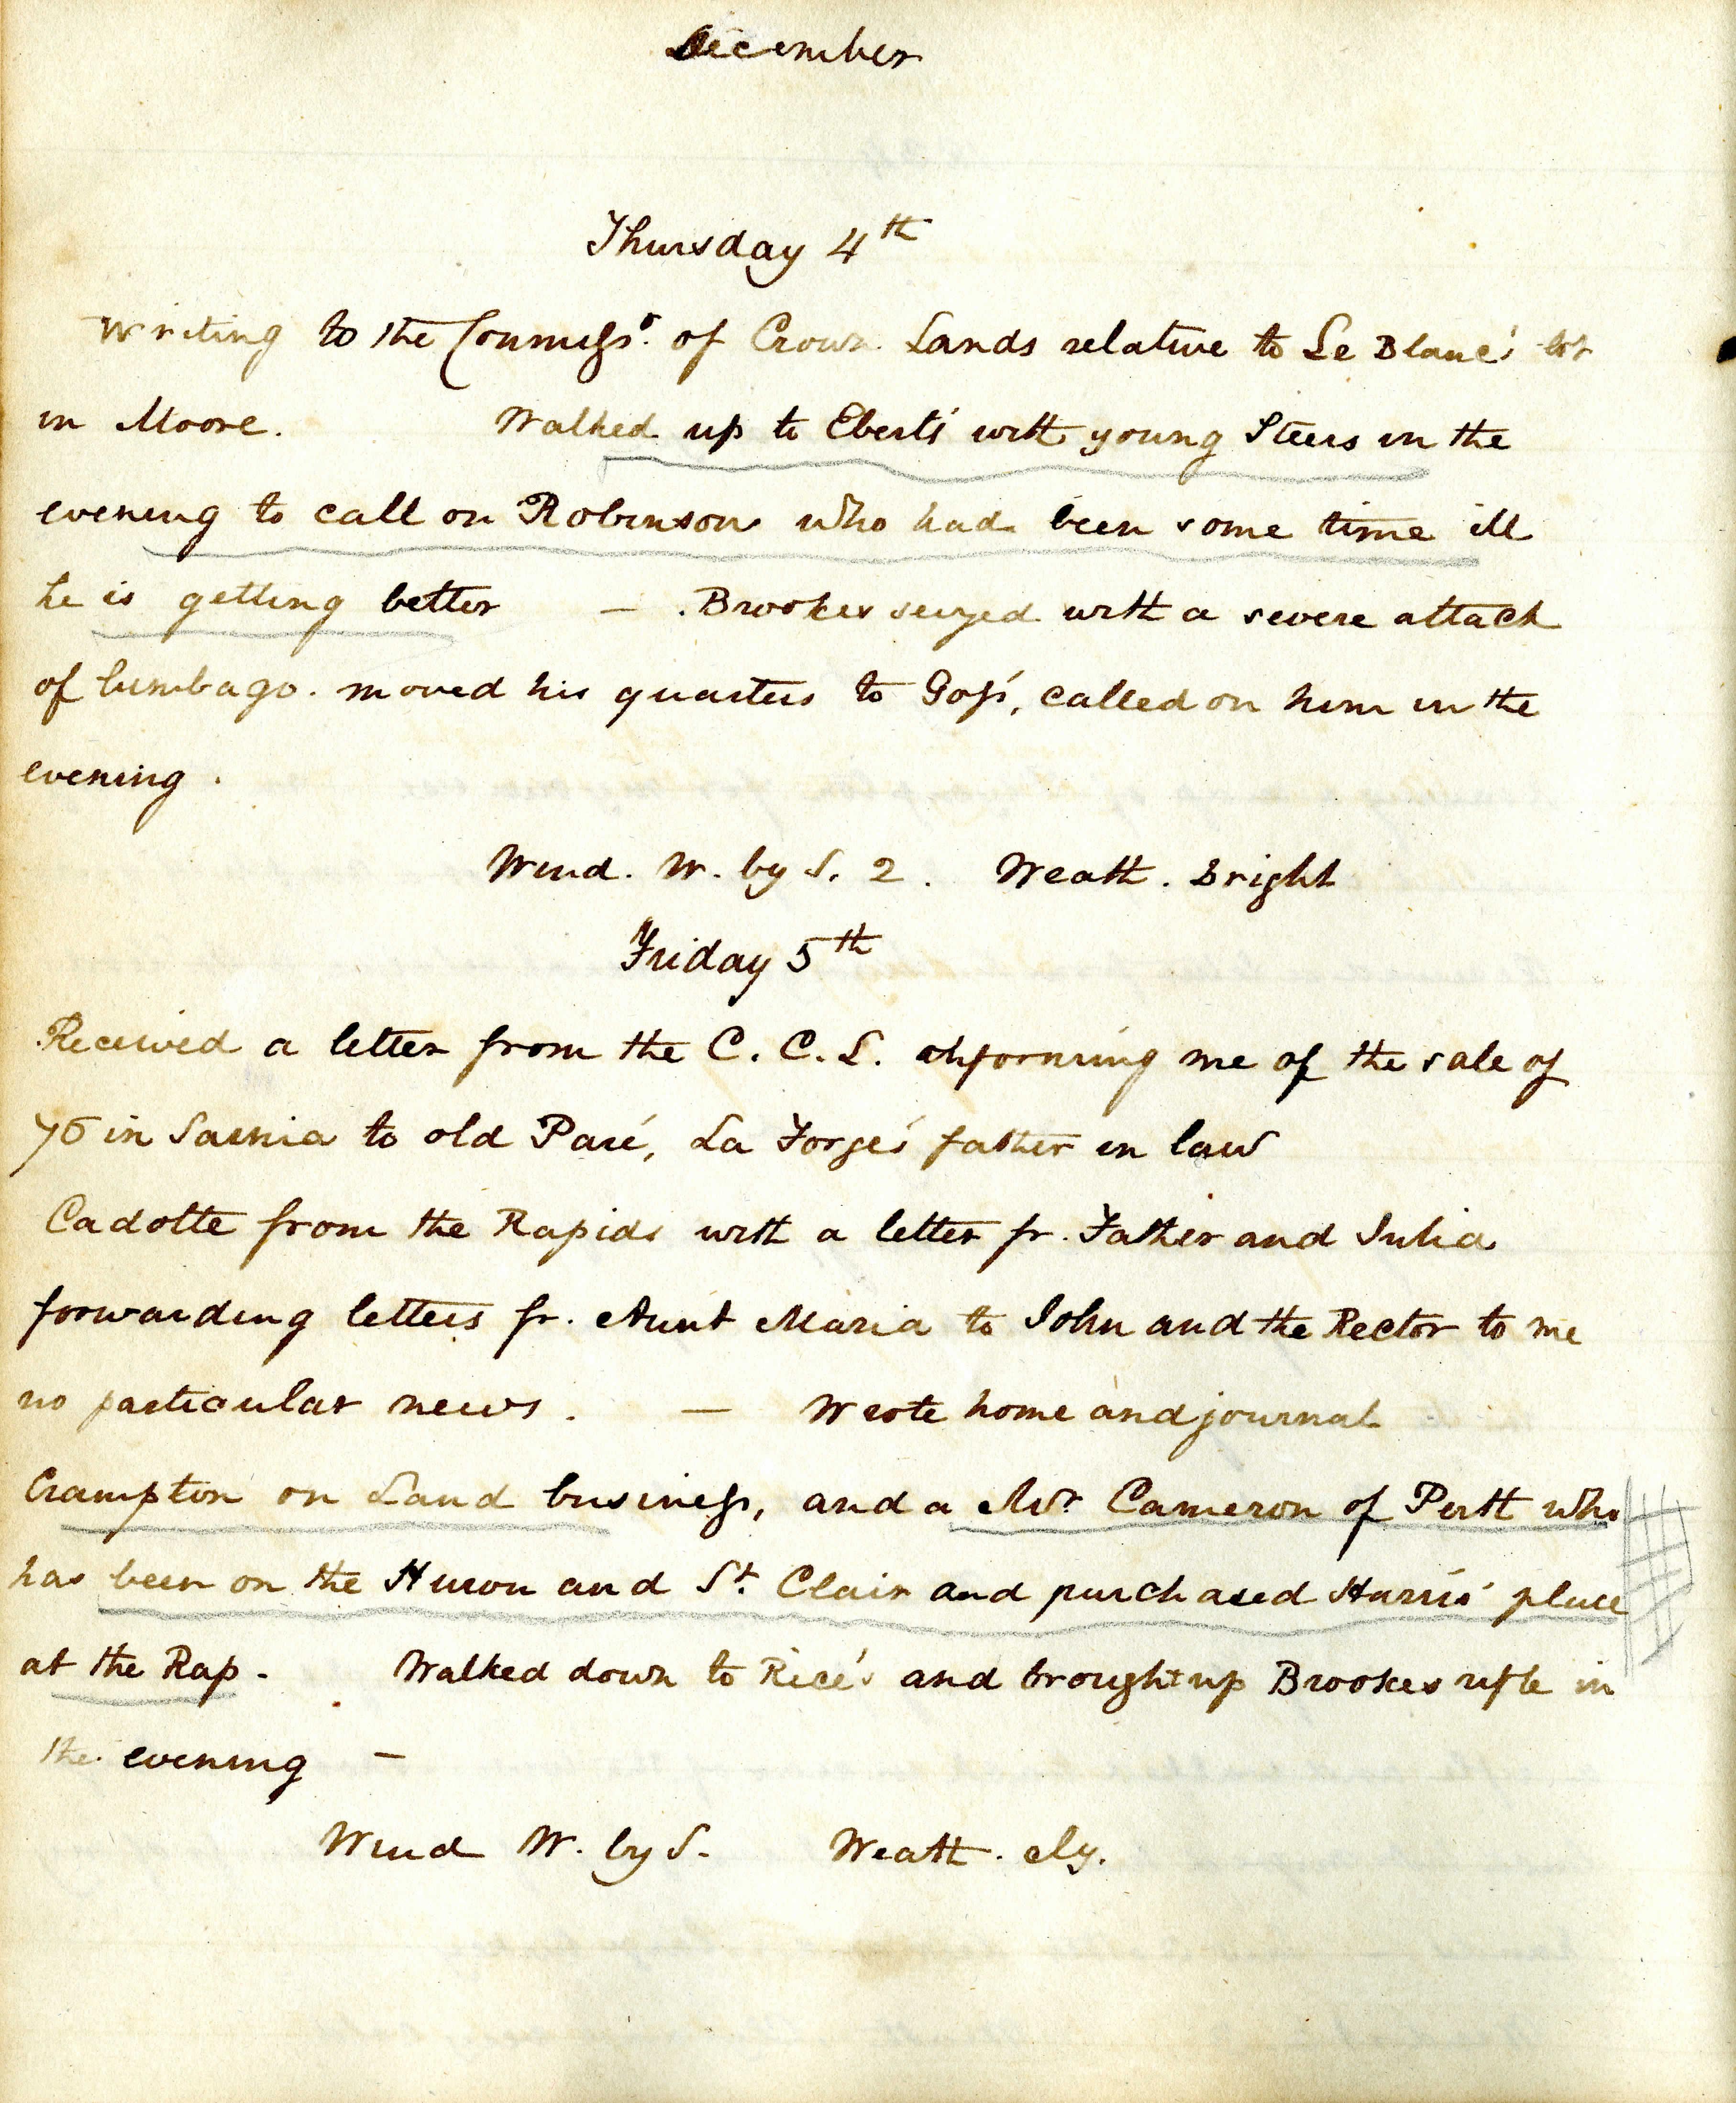 December
Thursday 4th
Writing to the Commissr. of Crown Lands relative to Le Blanc's lot
in Moore. Walked up to Eberts' with young Steers in the
evening to call on Robinson who had been some time ill
he is getting better — Brookes seized with a severe attack
of lumbago. moved his quarters to Goss', called on him in the
evening.
Wind. W. by S. 2. Weath. Bright
Friday 5th
Received a letter from the C. C. L. informing me of the sale of
in Sarnia to old Paré, La Forge's father in law
Cadotte from the Rapids with a letter fr. Father and Julia
forwarding letters fr. Aunt Maria to John and the Rector to me
no particular news. — Wrote home and journal
Crampton on Land business, and a Mr. Cameron of Perth who
has been on the Huron and St. Clair and purchased Harris' place
at the Rap. Walked down to Rice's and brought up Brookes rifle in
the evening —
Wind W. by S. Weath. cly.